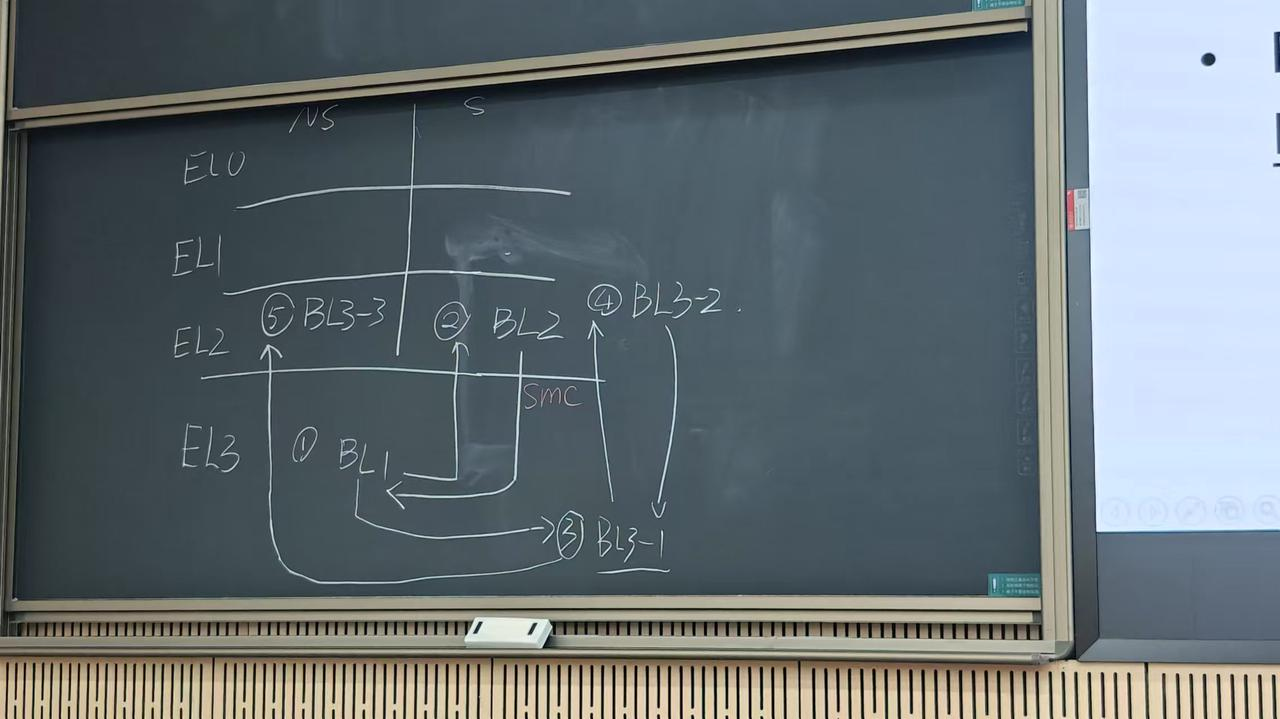 NS S
EL0
EL1
⑤ BL3-3 ② BL2 ④ BL3-2.
EL2
SMC
EL3 ① BL1
③ BL3-1